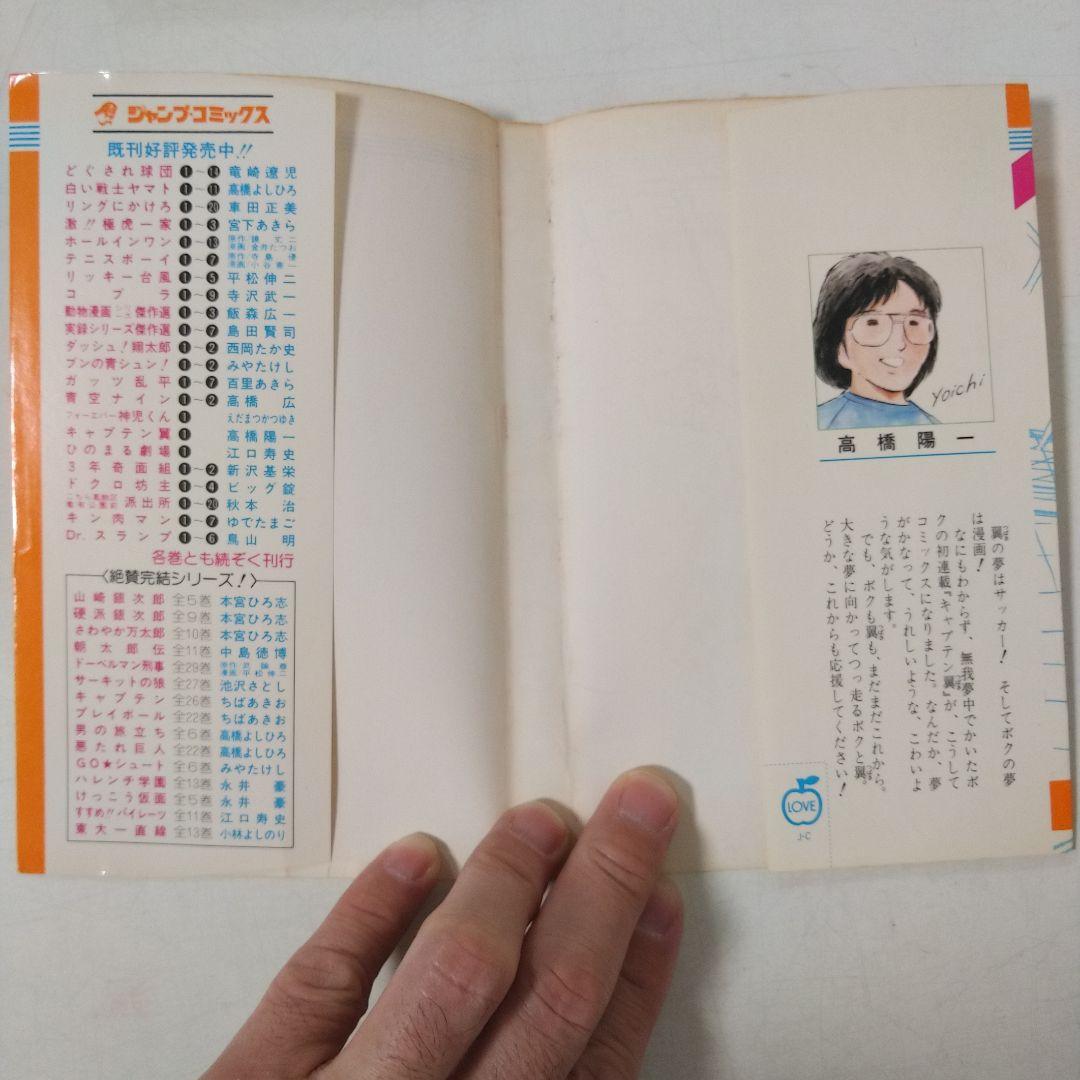 ジャンプ・コミックス
既刊好評発売中!!
どぐされ球団 ❶〜⓮ 竜崎遼児
白い戦士ヤマト ❶〜⓫ 高橋よしひろ
リングにかけろ ❶〜⓴ 車田正美
激!!極虎一家 ❶〜❸ 宮下あきら
ホールインワン ❶〜⓭ 原作/鏡丈二 漫画/金井たつお
テニスボーイ ❶〜❼ 原作/寺島優 漫画/小谷憲一
リッキー台風 ❶〜❺ 平松伸二
コブラ ❶〜❾ 寺沢武一
動物漫画 傑作選 ❶〜❸ 飯森広一
実録シリーズ傑作選 ❶〜❼ 島田賢司
ダッシュ!翔太郎 ❶〜❷ 西岡たか史
ブンの青シュン! ❶〜❷ みやたけし
ガッツ乱平 ❶〜❼ 百里あきら
青空ナイン ❶〜❷ 高橋広
フォーエバー神児くん ❶ えだまつかつゆき
キャプテン翼 ❶ 高橋陽一
ひのまる劇場 ❶ 江口寿史
3年奇面組 ❶〜❷ 新沢基栄
ドクロ坊主 ❶〜❹ ビッグ錠
こちら葛飾区亀有公園前派出所 ❶〜⓴ 秋本治
キン肉マン ❶〜❼ ゆでたまご
Dr.スランプ ❶〜❻ 鳥山明
各巻とも続ぞく刊行
〈絶賛完結シリーズ!〉
山崎銀次郎 全5巻 本宮ひろ志
硬派銀次郎 全9巻 本宮ひろ志
さわやか万太郎 全10巻 本宮ひろ志
朝太郎伝 全11巻 中島徳博
ドーベルマン刑事 全29巻 原作/武論尊 漫画/平松伸二
サーキットの狼 全27巻 池沢さとし
キャプテン 全26巻 ちばあきお
プレイボール 全22巻 ちばあきお
男の旅立ち 全6巻 高橋よしひろ
悪たれ巨人 全22巻 高橋よしひろ
GO★シュート 全6巻 みやたけし
ハレンチ学園 全13巻 永井豪
けっこう仮面 全5巻 永井豪
すすめ!!パイレーツ 全11巻 江口寿史
東大一直線 全13巻 小林よしのり
Yoichi
高橋陽一
翼の夢はサッカー! そしてボクの夢
は漫画!
なにもわからず、無我夢中でかいたボ
クの初連載『キャプテン翼』が、こうして
コミックスになりました。なんだか、夢
がかなって、うれしいような、こわいよ
うな気がします。
でも、ボクも翼も、まだまだこれから。
大きな夢に向かってつっ走るボクと翼。
どうか、これからも応援してください!
LOVE
J・C